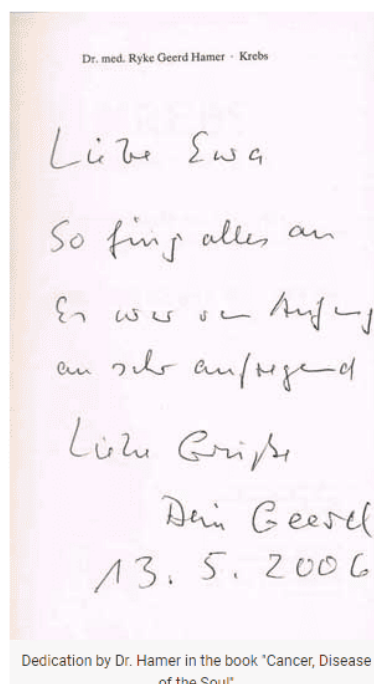 Dr. med. Ryke Geerd Hamer · Krebs
Liebe Ewa
So fing alles an
Es war von Anfang
an sehr aufregend
Liebe Grüße
Dein Geerd
13. 5. 2006
Dedication by Dr. Hamer in the book "Cancer, Disease
of the Soul"